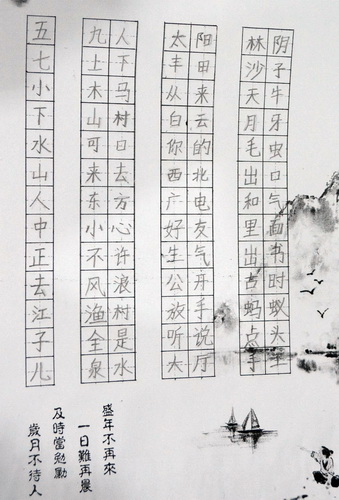 五 九人 太阳 林阴
七 土下 丰田 沙子
小 木马 从来 天牛
下 山村 白云 月牙
水 可口 你的 毛虫
山 来去 西北 出口
人 东方 广电 和气
中 小心 好友 里面
正 不许 生气 出书
去 风浪 公开 古时
江 渔村 放手 蚂蚁
子 全是 听说 点头
儿 泉水 大厅 手
盛年不再來
一日難再晨
及時當勉勵
歲月不待人